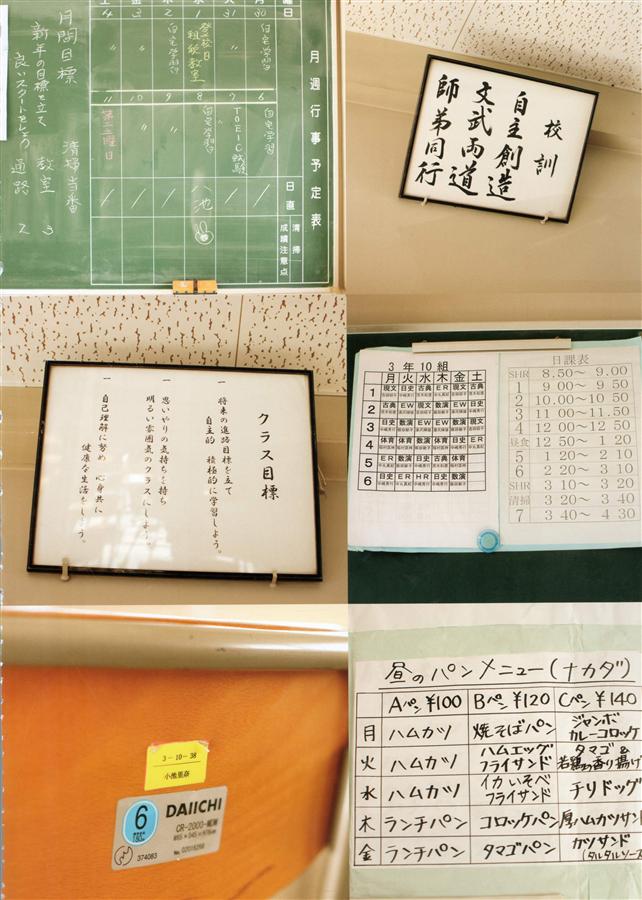 月週行事予定表
曜日
30 月 自宅学習
31 火 〃
1 水 登校日 租税教室
2 木 自宅学習
3 金 〃
4 土 〃
6 自宅学習
7 TOEIC試験
8 自宅学習
9 〃
10 〃
第二土曜日
日直
八池
清掃
成績注意点
月間目標
新年の目標を立て
良いスタートをしよう
清掃当番
教室 3
通路 2
校訓
自主創造
文武両道
師弟同行
クラス目標
一 将来の進路目標を立て
自主的 積極的に学習しよう。
一 思いやりの気持ちを持ち
明るい雰囲気のクラスにしよう。
一 自己理解に努め 心身共に
健康な生活をしよう。
3年10組
月 火 水 木 金 土
1 現文 日史 古典 ER 現文 古典
2 古典 EW 現文 数演 EW 日史
3 日史 数演 EW EW 日史 数演
4 体育 体育 数演 古典 体育 ER
5 ER 数演 日史 古典 体育
6 日史 ER HR 日史 数演
日課表
SHR 8.50～ 9.00
1 9 00～ 9 50
2 10.00～10 50
3 11 00～11.50
4 12 00～12 50
昼食 12 50～ 1 20
5 1 20～ 2 10
6 2 20～ 3 10
SHR 3 10～ 3 20
清掃 3 20～ 3 40
7 3 40～ 4 30
3-10-38
小池里奈
6
TBSC
DAIICHI
CR-2000-MEW
374083
No. 02018268
昼のパンメニュー(ナカダ)
Aパン¥100 Bパン¥120 Cパン¥140
月 ハムカツ 焼そばパン ジャンボカレーコロッケ
火 ハムカツ ハムエッグフライサンド タマゴ&若鶏の香り揚げ
水 ハムカツ イカいそべフライサンド チリドッグ
木 ランチパン コロッケパン 厚ハムカツサンド
金 ランチパン タマゴパン カツサンド(タルタルソース